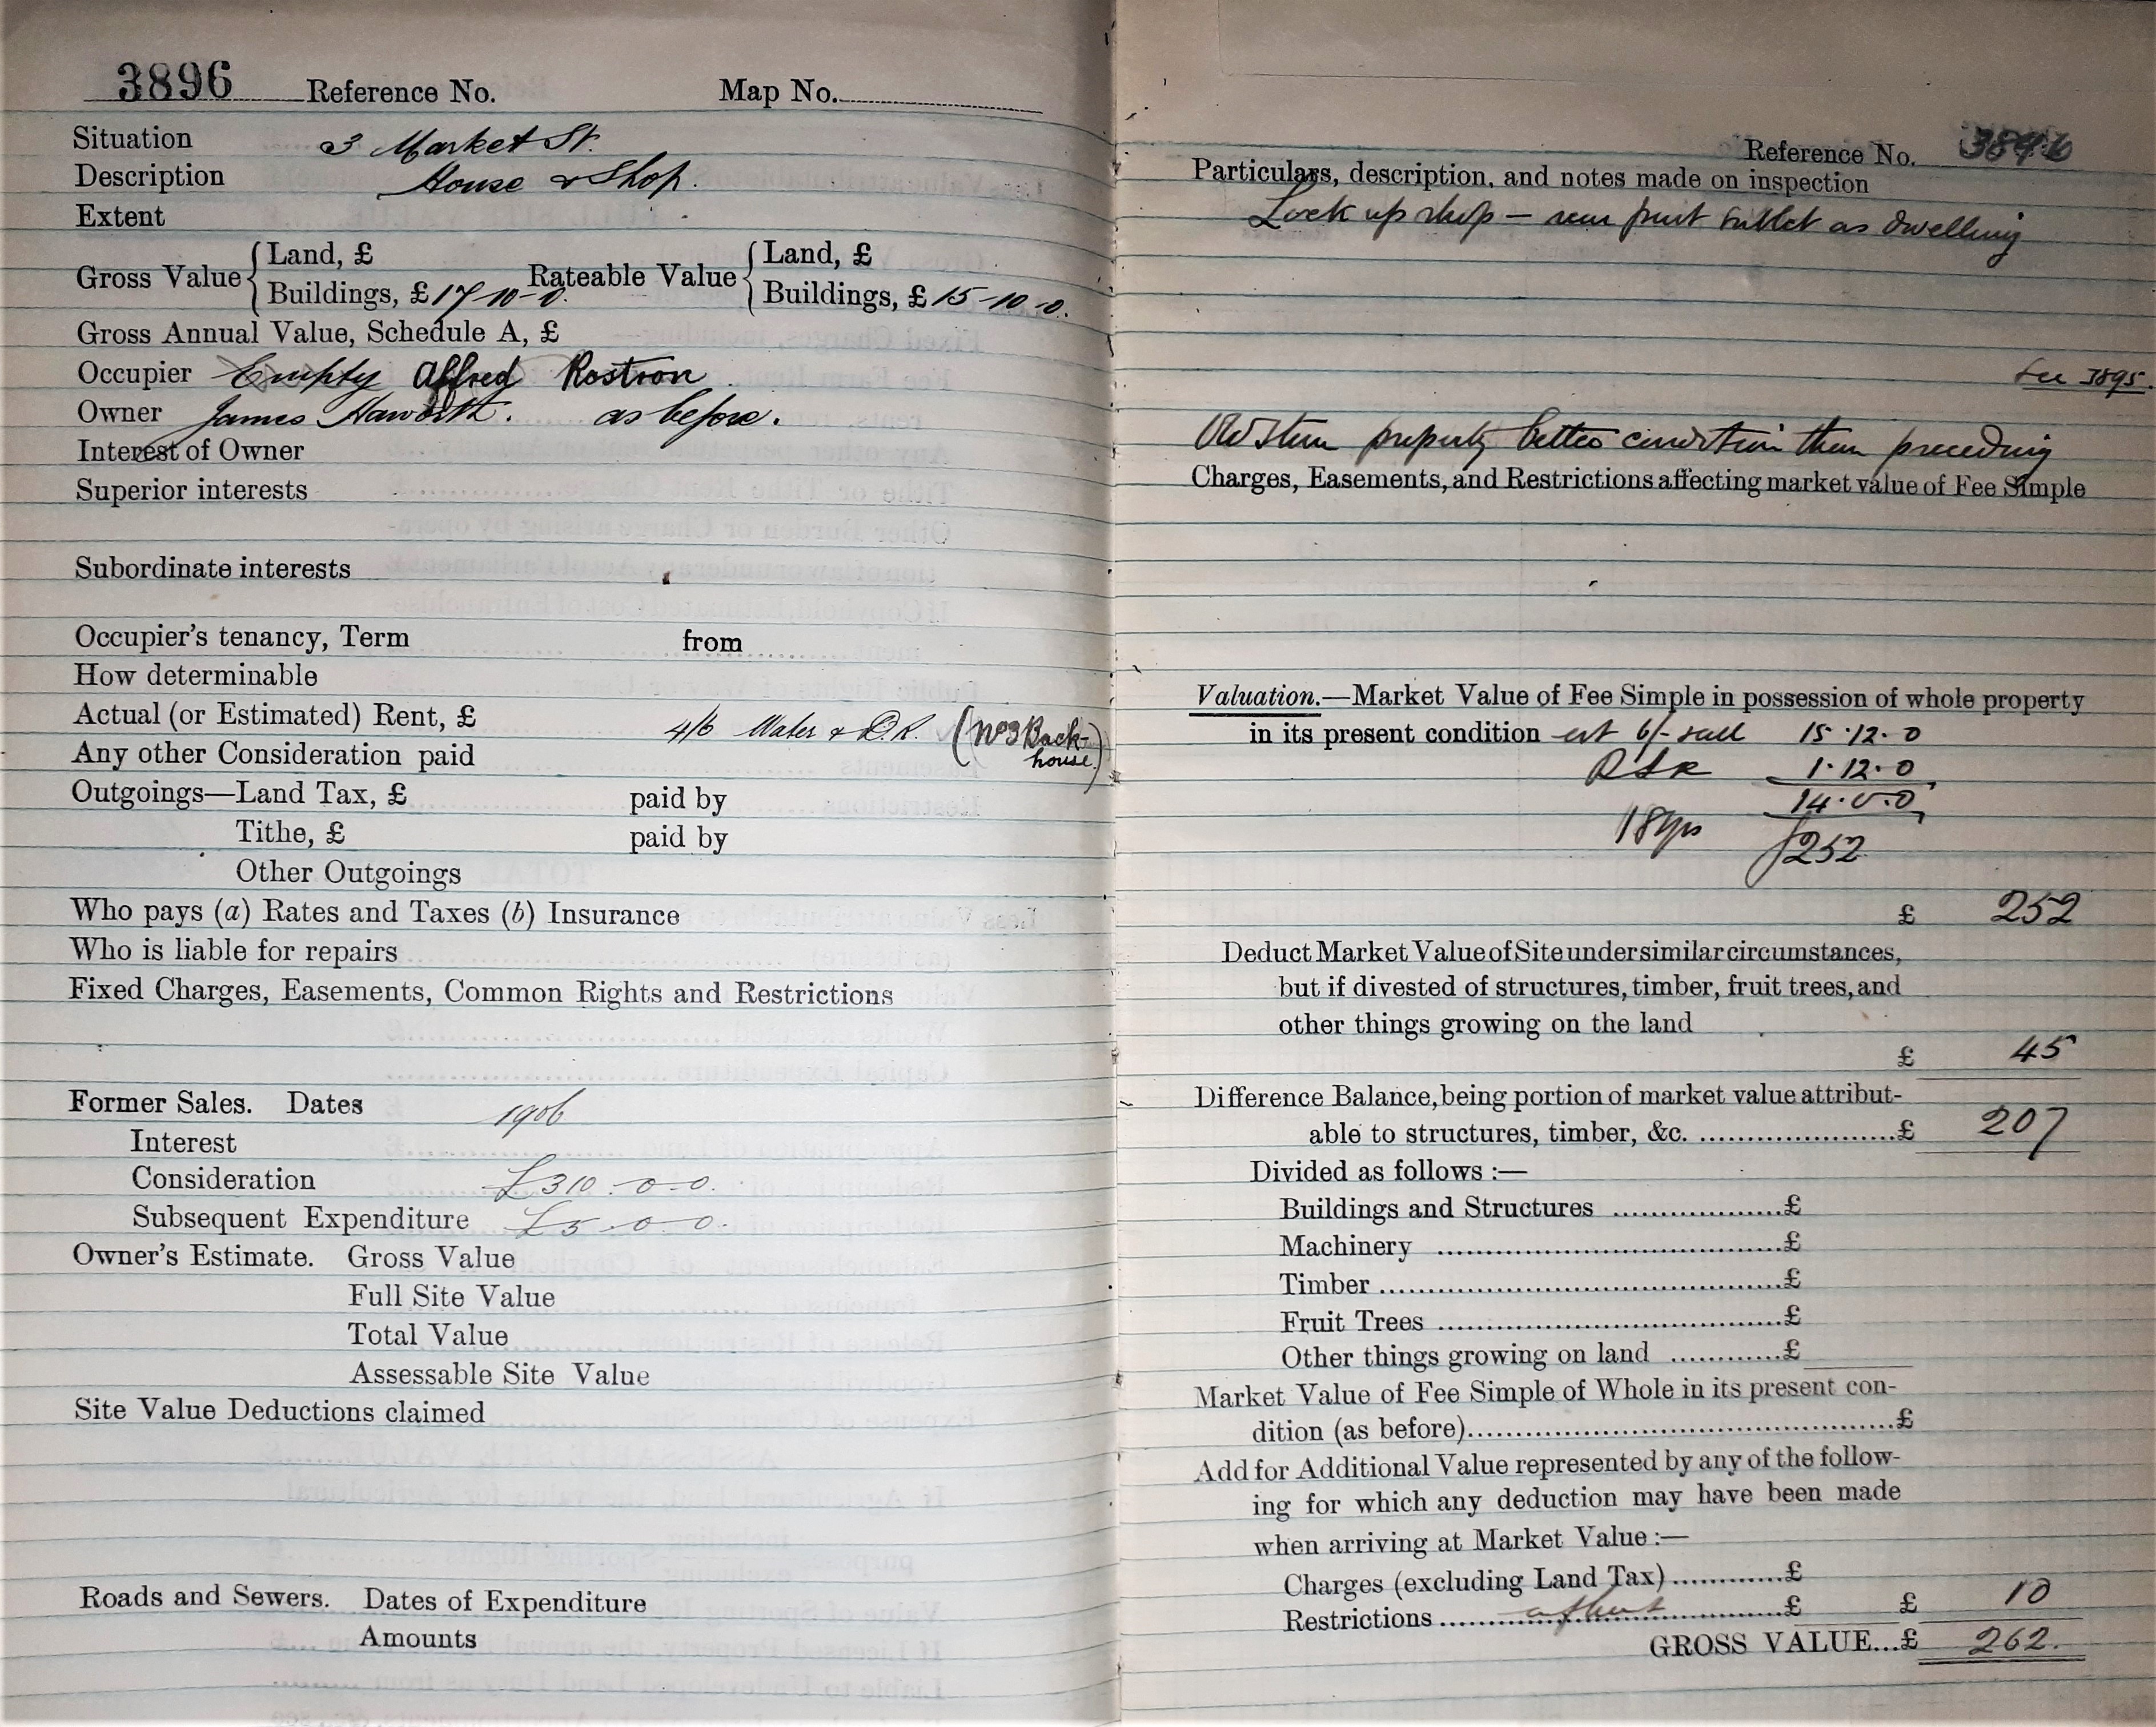 3896 Reference No. Map No.
Situation 3 Market St.
Description House & Shop.
Extent
Gross Value { Land, £ Rateable Value { Land, £
Buildings, £ 17-10-0. Buildings, £ 15-10-0.
Gross Annual Value, Schedule A, £
Occupier Empty Alfred Rostron
Owner James Haworth. as before.
Interest of Owner
Superior interests
Subordinate interests
Occupier's tenancy, Term from
How determinable
Actual (or Estimated) Rent, £ 4/6 Water & D.R. (No 3 Back-
Any other Consideration paid house.)
Outgoings—Land Tax, £ paid by
Tithe, £ paid by
Other Outgoings
Who pays (a) Rates and Taxes (b) Insurance
Who is liable for repairs
Fixed Charges, Easements, Common Rights and Restrictions
Former Sales. Dates 1906
Interest
Consideration £310.0.0.
Subsequent Expenditure £5.0.0.
Owner's Estimate. Gross Value
Full Site Value
Total Value
Assessable Site Value
Site Value Deductions claimed
Roads and Sewers. Dates of Expenditure
Amounts
Reference No. 3896
Particulars, description, and notes made on inspection
Lock up shop — rear part sublet as dwelling
see 3895.
Old Stone property better condition than preceding
Charges, Easements, and Restrictions affecting market value of Fee Simple
Valuation.—Market Value of Fee Simple in possession of whole property
in its present condition est 6/- 15.12.0
1.12.0
14.0.0
18 yrs £252
£ 252
Deduct Market Value of Site under similar circumstances,
but if divested of structures, timber, fruit trees, and
other things growing on the land
£ 45
Difference Balance, being portion of market value attribut-
able to structures, timber, &c. ........................£ 207
Divided as follows :—
Buildings and Structures ....................£
Machinery ........................................£
Timber ..............................................£
Fruit Trees ........................................£
Other things growing on land ............£
Market Value of Fee Simple of Whole in its present con-
dition (as before)..................................................£
Add for Additional Value represented by any of the follow-
ing for which any deduction may have been made
when arriving at Market Value :—
Charges (excluding Land Tax)............£
Restrictions........................................£ £ 10
GROSS VALUE...£ 262.